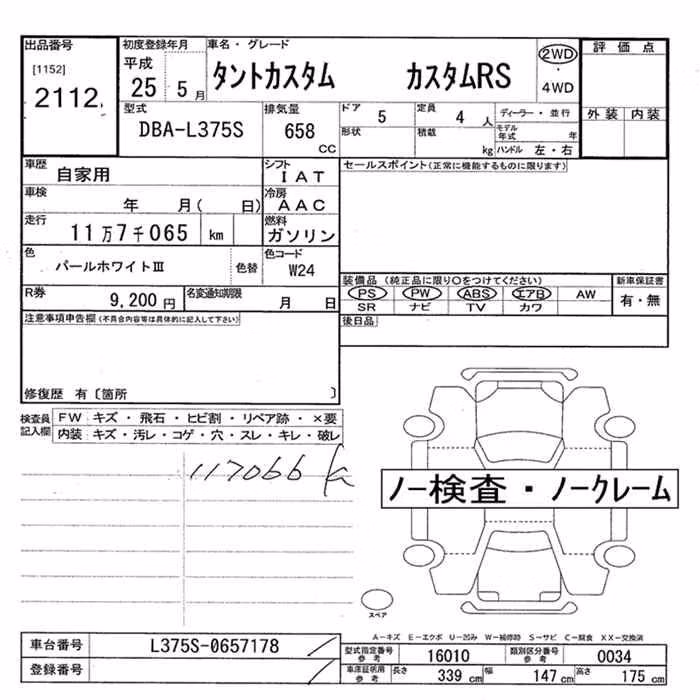 出品番号
[1152]
2112
初度登録年月
平成
25 5 月
車名・グレード
タントカスタム カスタムRS
2WD
・
4WD
評価点
外装 内装
型式
DBA-L375S
排気量
658
cc
ドア
5
定員
4 人
ディーラー・並行
形状
積載
kg
モデル年式 年
ハンドル 左・右
車歴
自家用
シフト
IAT
車検
年 月( 日)
冷房
AAC
走行
11万7千065 km
燃料
ガソリン
色
パールホワイトⅢ
色替
色コード
W24
R券
9,200 円
名変通知期限
月 日
セールスポイント(正常に機能するものに限ります)
装備品 (純正品に限り○をつけてください)
PS PW ABS エアB AW
SR ナビ TV カワ
新車保証書
有・無
後日品
注意事項申告欄(不具合内容等は具体的に記入して下さい)
修復歴 有〔箇所 〕
検査員
記入欄
FW キズ・飛石・ヒビ割・リペア跡・×要
内装 キズ・汚レ・コゲ・穴・スレ・キレ・破レ
117066
ノー検査・ノークレーム
スペア
A―キズ E―エクボ U―凹み W―補修跡 S―サビ C―腐食 XX―交換済
車台番号
L375S-0657178
登録番号
型式指定番号
参考
16010
類別区分番号
参考
0034
車庫証明用
参考
長さ 339 cm 幅 147 cm 高さ 175 cm